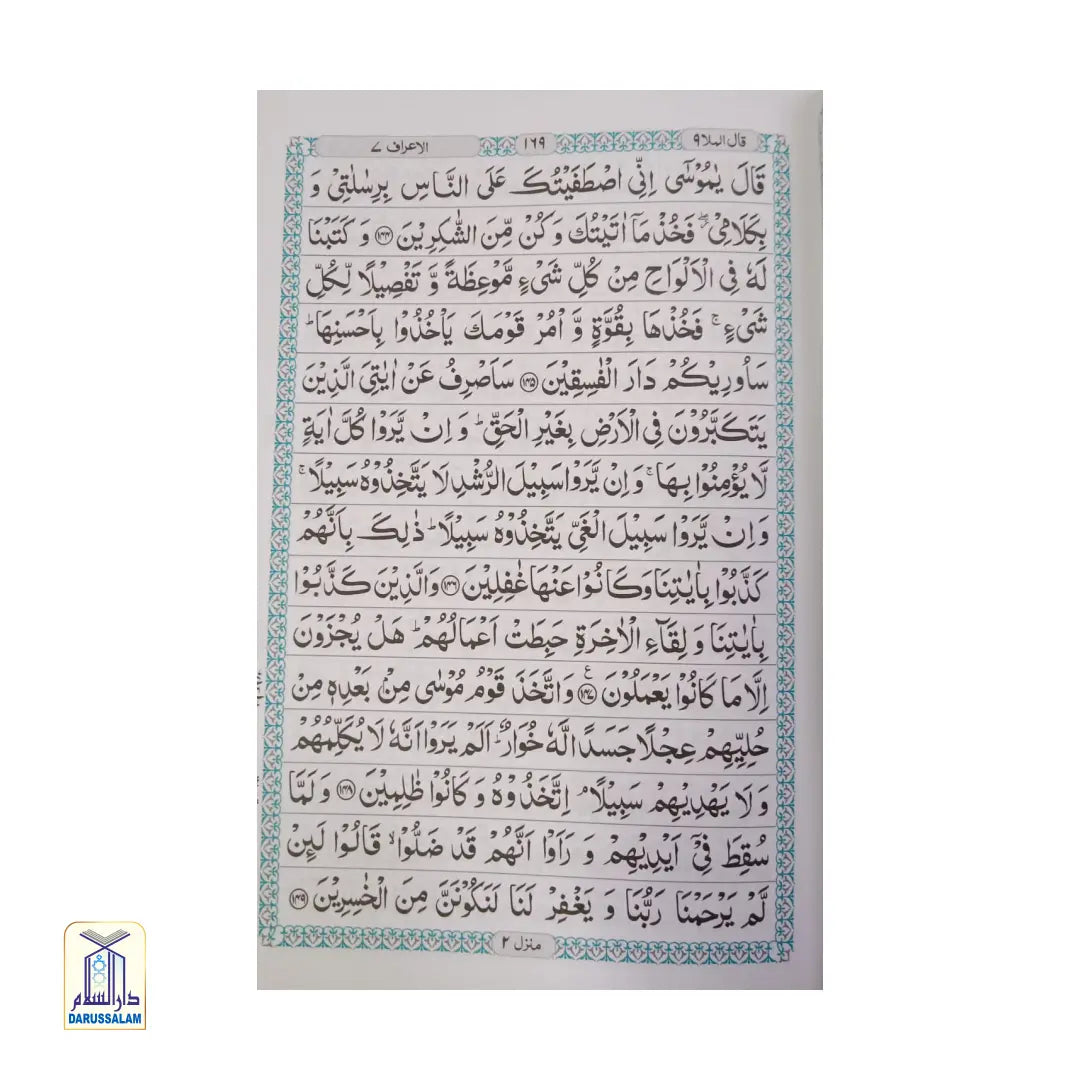 قال الملا ٩
١٦٩
الاعراف ٧
قَالَ يٰمُوْسٰٓى اِنِّى اصْطَفَيْتُكَ عَلَى النَّاسِ بِرِسٰلٰتِيْ وَ
بِكَلَامِيْ ۖ فَخُذْ مَاۤ اٰتَيْتُكَ وَ كُنْ مِّنَ الشّٰكِرِيْنَ ۝١٤٤ وَ كَتَبْنَا
لَهٗ فِى الْاَلْوَاحِ مِنْ كُلِّ شَيْءٍ مَّوْعِظَةً وَّ تَفْصِيْلًا لِّكُلِّ
شَيْءٍ ۚ فَخُذْهَا بِقُوَّةٍ وَّ اْمُرْ قَوْمَكَ يَاْخُذُوْا بِاَحْسَنِهَا ؕ
سَاُورِيْكُمْ دَارَ الْفٰسِقِيْنَ ۝١٤٥ سَاَصْرِفُ عَنْ اٰيٰتِيَ الَّذِيْنَ
يَتَكَبَّرُوْنَ فِى الْاَرْضِ بِغَيْرِ الْحَقِّ ؕ وَ اِنْ يَّرَوْا كُلَّ اٰيَةٍ
لَّا يُؤْمِنُوْا بِهَا ۚ وَ اِنْ يَّرَوْا سَبِيْلَ الرُّشْدِ لَا يَتَّخِذُوْهُ سَبِيْلًا ۚ
وَ اِنْ يَّرَوْا سَبِيْلَ الْغَيِّ يَتَّخِذُوْهُ سَبِيْلًا ؕ ذٰلِكَ بِاَنَّهُمْ
كَذَّبُوْا بِاٰيٰتِنَا وَ كَانُوْا عَنْهَا غٰفِلِيْنَ ۝١٤٦ وَالَّذِيْنَ كَذَّبُوْا
بِاٰيٰتِنَا وَ لِقَآءِ الْاٰخِرَةِ حَبِطَتْ اَعْمَالُهُمْ ؕ هَلْ يُجْزَوْنَ
اِلَّا مَا كَانُوْا يَعْمَلُوْنَ ۝١٤٧ ع وَاتَّخَذَ قَوْمُ مُوْسٰى مِنْۢ بَعْدِهٖ مِنْ
حُلِيِّهِمْ عِجْلًا جَسَدًا لَّهٗ خُوَارٌ ؕ اَلَمْ يَرَوْا اَنَّهٗ لَا يُكَلِّمُهُمْ
وَ لَا يَهْدِيْهِمْ سَبِيْلًا ۘ اِتَّخَذُوْهُ وَ كَانُوْا ظٰلِمِيْنَ ۝١٤٨ وَ لَمَّا
سُقِطَ فِيْۤ اَيْدِيْهِمْ وَ رَاَوْا اَنَّهُمْ قَدْ ضَلُّوْا ۙ قَالُوْا لَىِٕنْ
لَّمْ يَرْحَمْنَا رَبُّنَا وَ يَغْفِرْ لَنَا لَنَكُوْنَنَّ مِنَ الْخٰسِرِيْنَ ۝١٤٩
منزل ٢
دارالسلام
DARUSSALAM